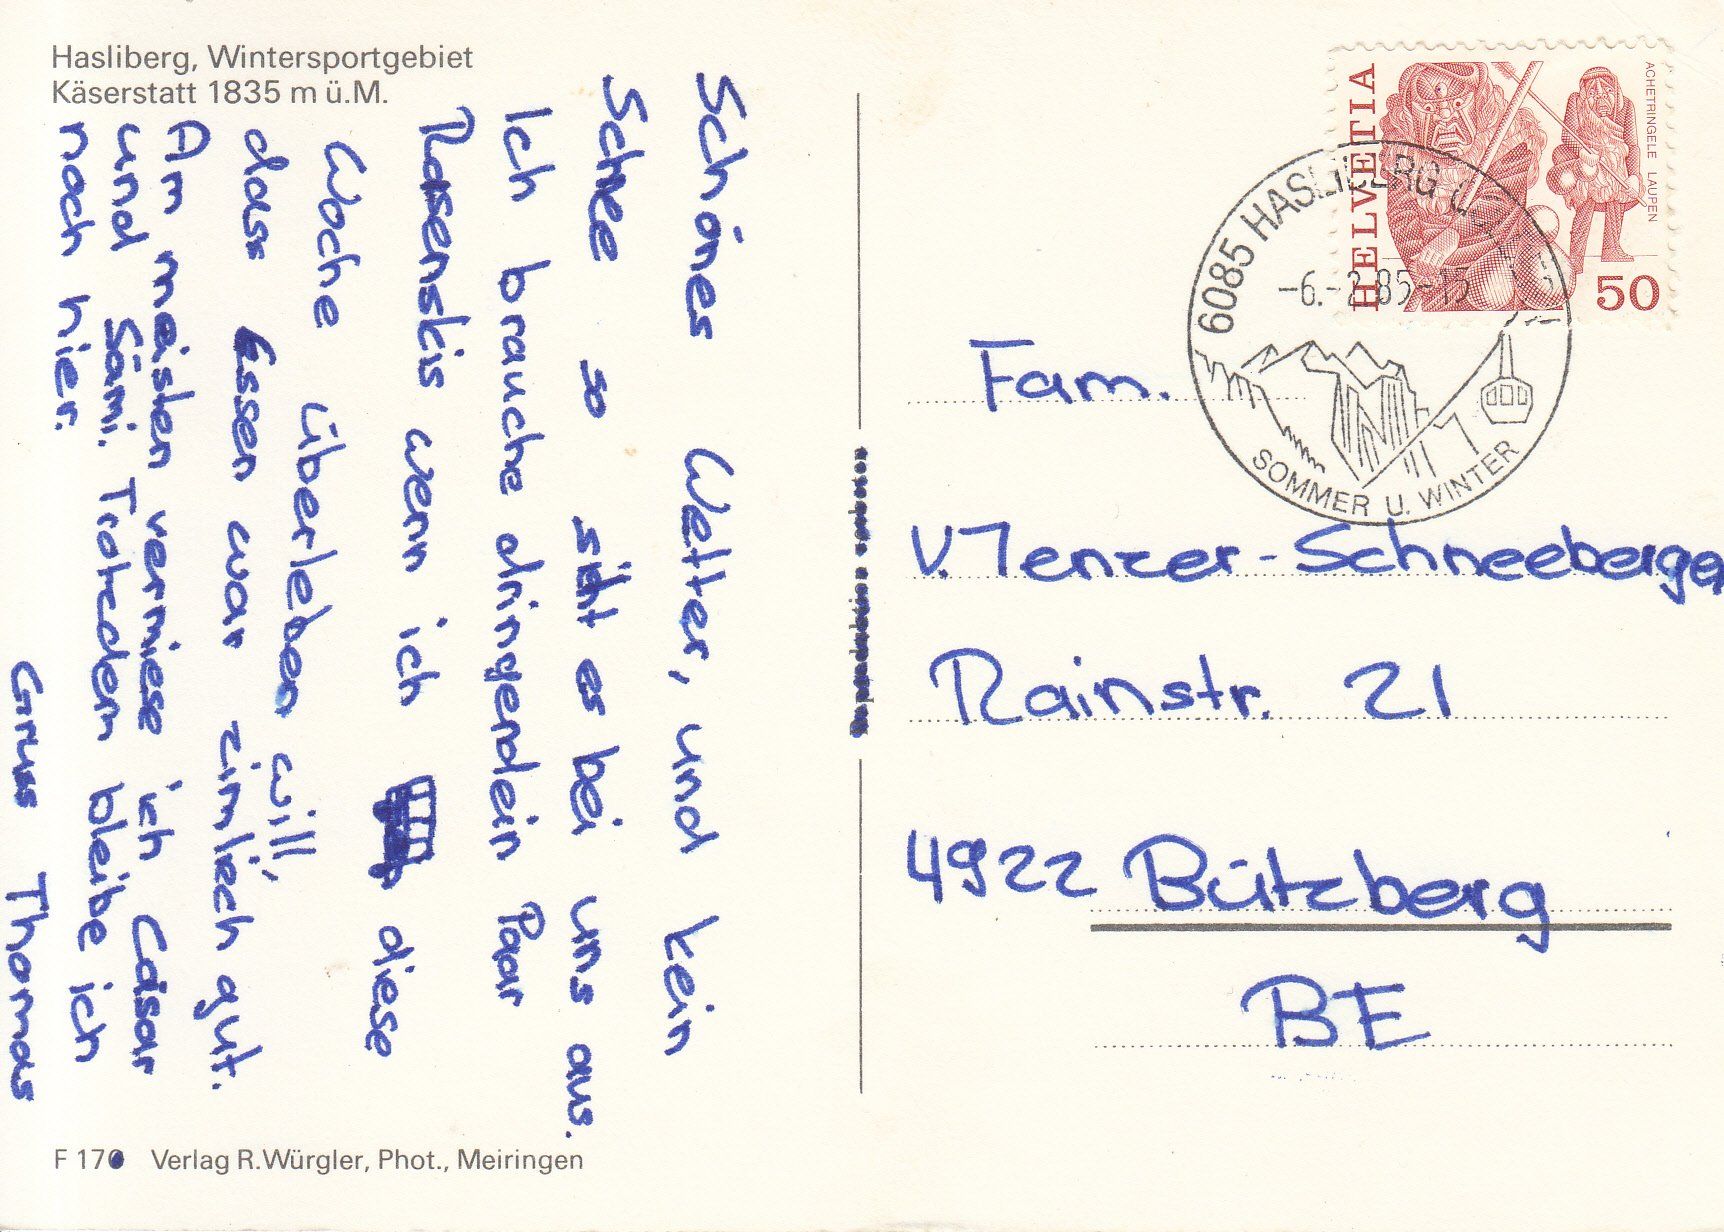 Hasliberg, Wintersportgebiet
Käserstatt 1835 m ü.M.
Schönes Wetter, und kein
Schnee so siht es bei uns aus.
Ich brauche dringend ein Paar
Rasenskis wenn ich diese
Woche überleben will,
dass Essen war zimliech gut.
Am meisten vermiese ich Cäsar
und Sämi. Trotzdem bleibe ich
noch hier.
Gruss Thomas
F 170 Verlag R.Würgler, Phot., Meiringen
HELVETIA
ACHETRINGELE LAUPEN
50
6085 HASLIBERG
-6.-2.85-15
SOMMER U. WINTER
Fam.
V. Jenzer-Schneeberger
Rainstr. 21
4922 Bützberg
BE